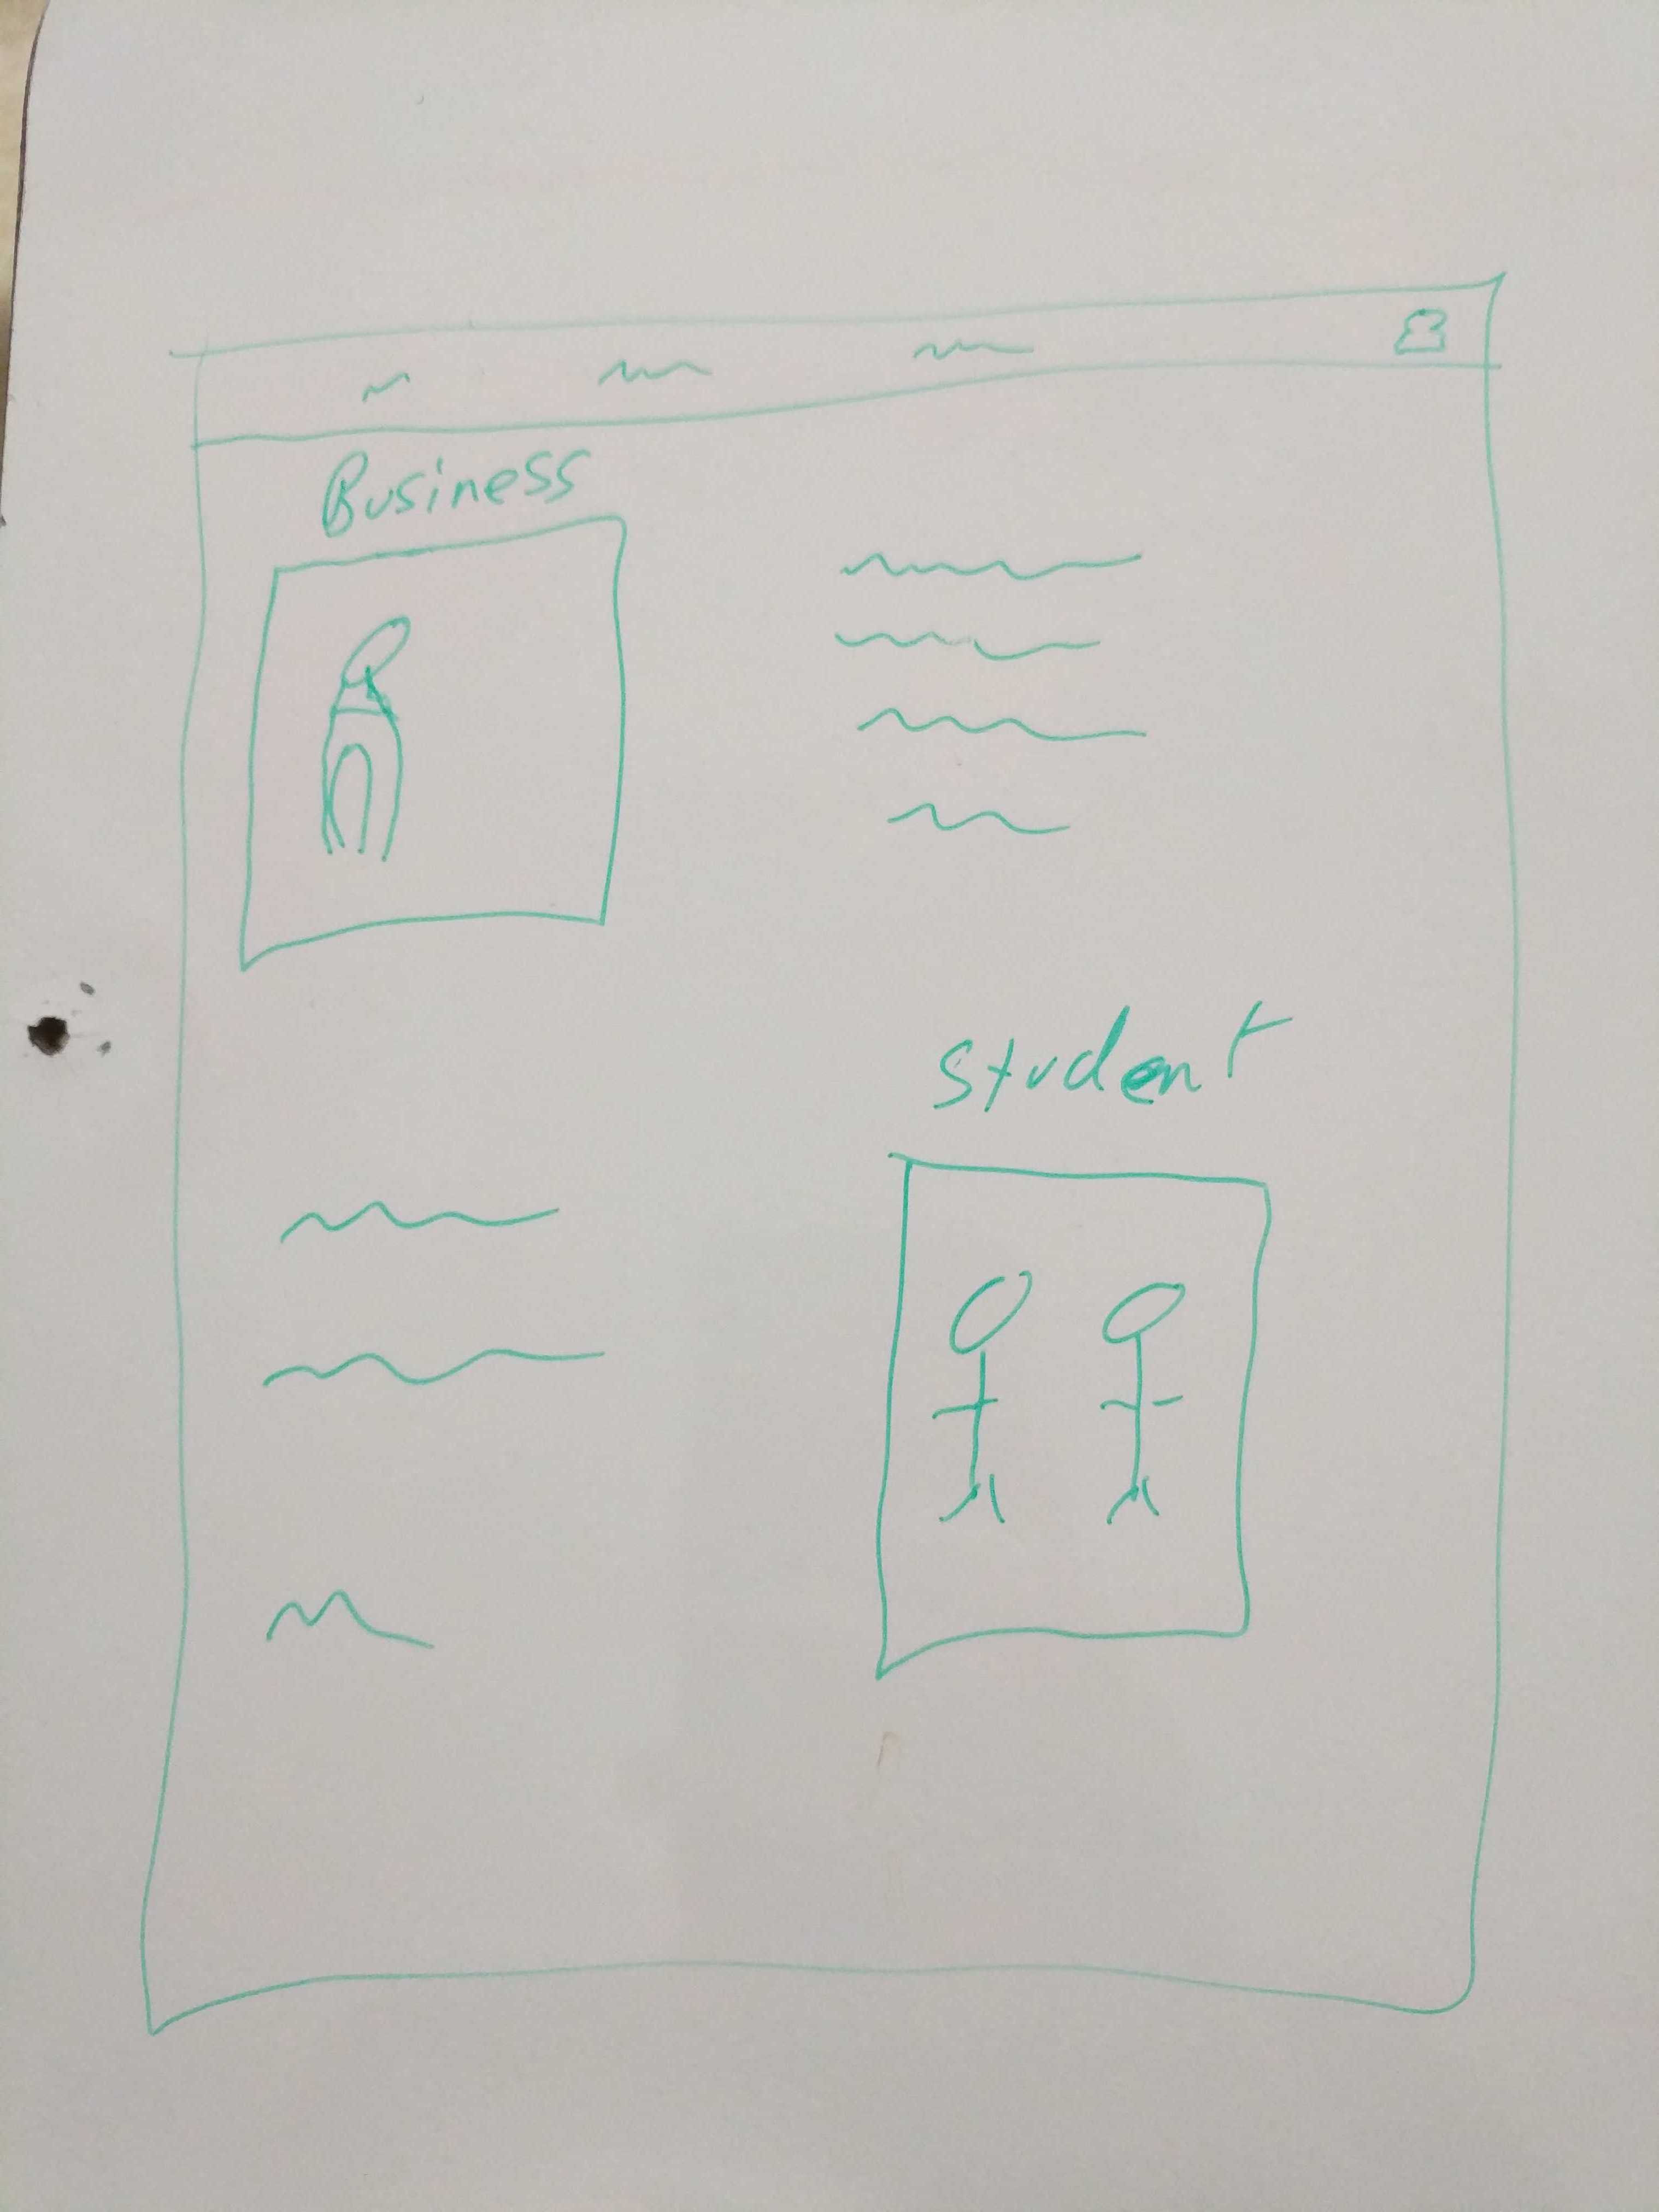 Business
Student